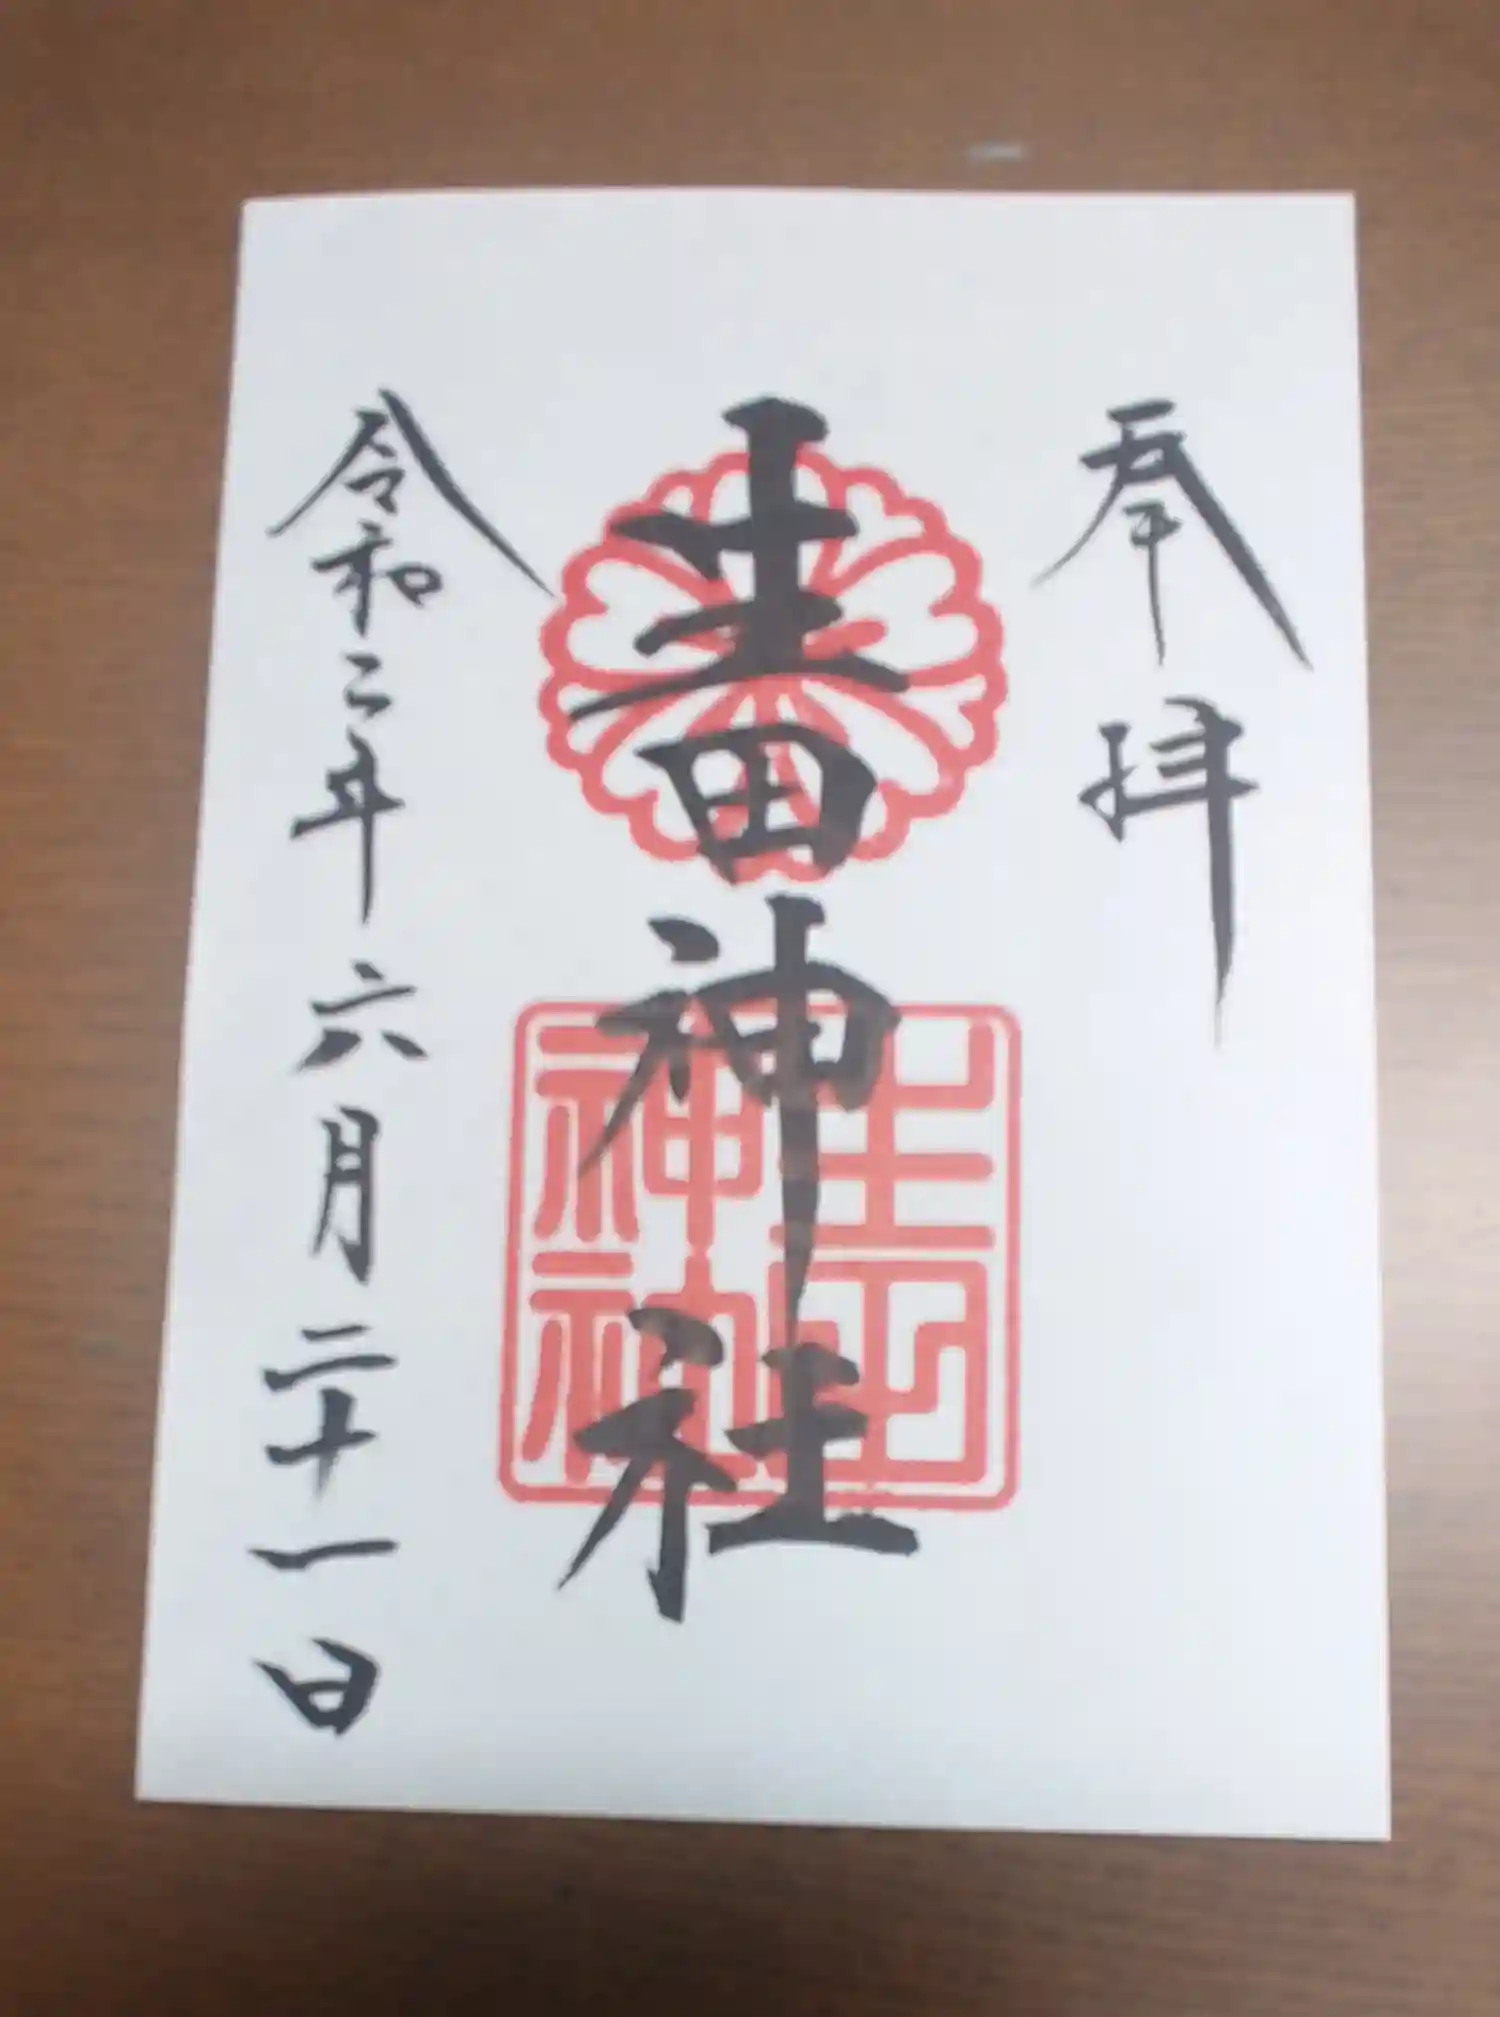 奉拝
生田神社
生田
神社
令和二年六月二十一日